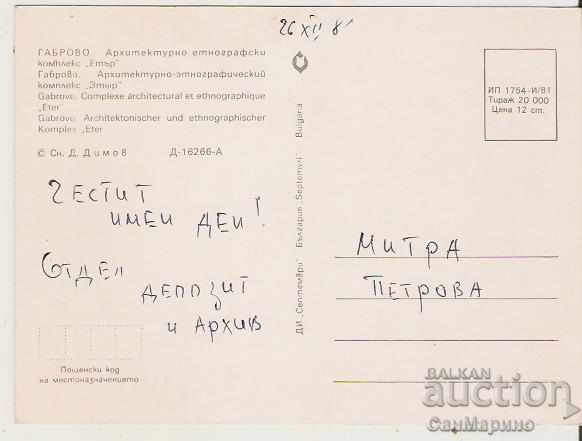 26 XII 81
ГАБРОВО. Архитектурно-етнографски
комплекс „Етър”
Габрово. Архитектурно-этнографический
комплекс „Этыр”
Gabrovo. Complexe architectural et ethnographique
„Eter”
Gabrovo. Architektonischer und ethnographischer
Komplex „Eter
© Сн. Д. Димов Д-16266-А
ЧЕСТИТ
ИМЕН ДЕН!
ОТДЕЛ
ДЕПОЗИТ
И АРХИВ
Пощенски код
на местоназначението
ДИ „Септември” България „Septemvri” Bulgaria
ИП 1754-И/81
Тираж 20 000
Цена 12 ст.
МИТРА
ПЕТРОВА
BALKAN
auction
СанМарино